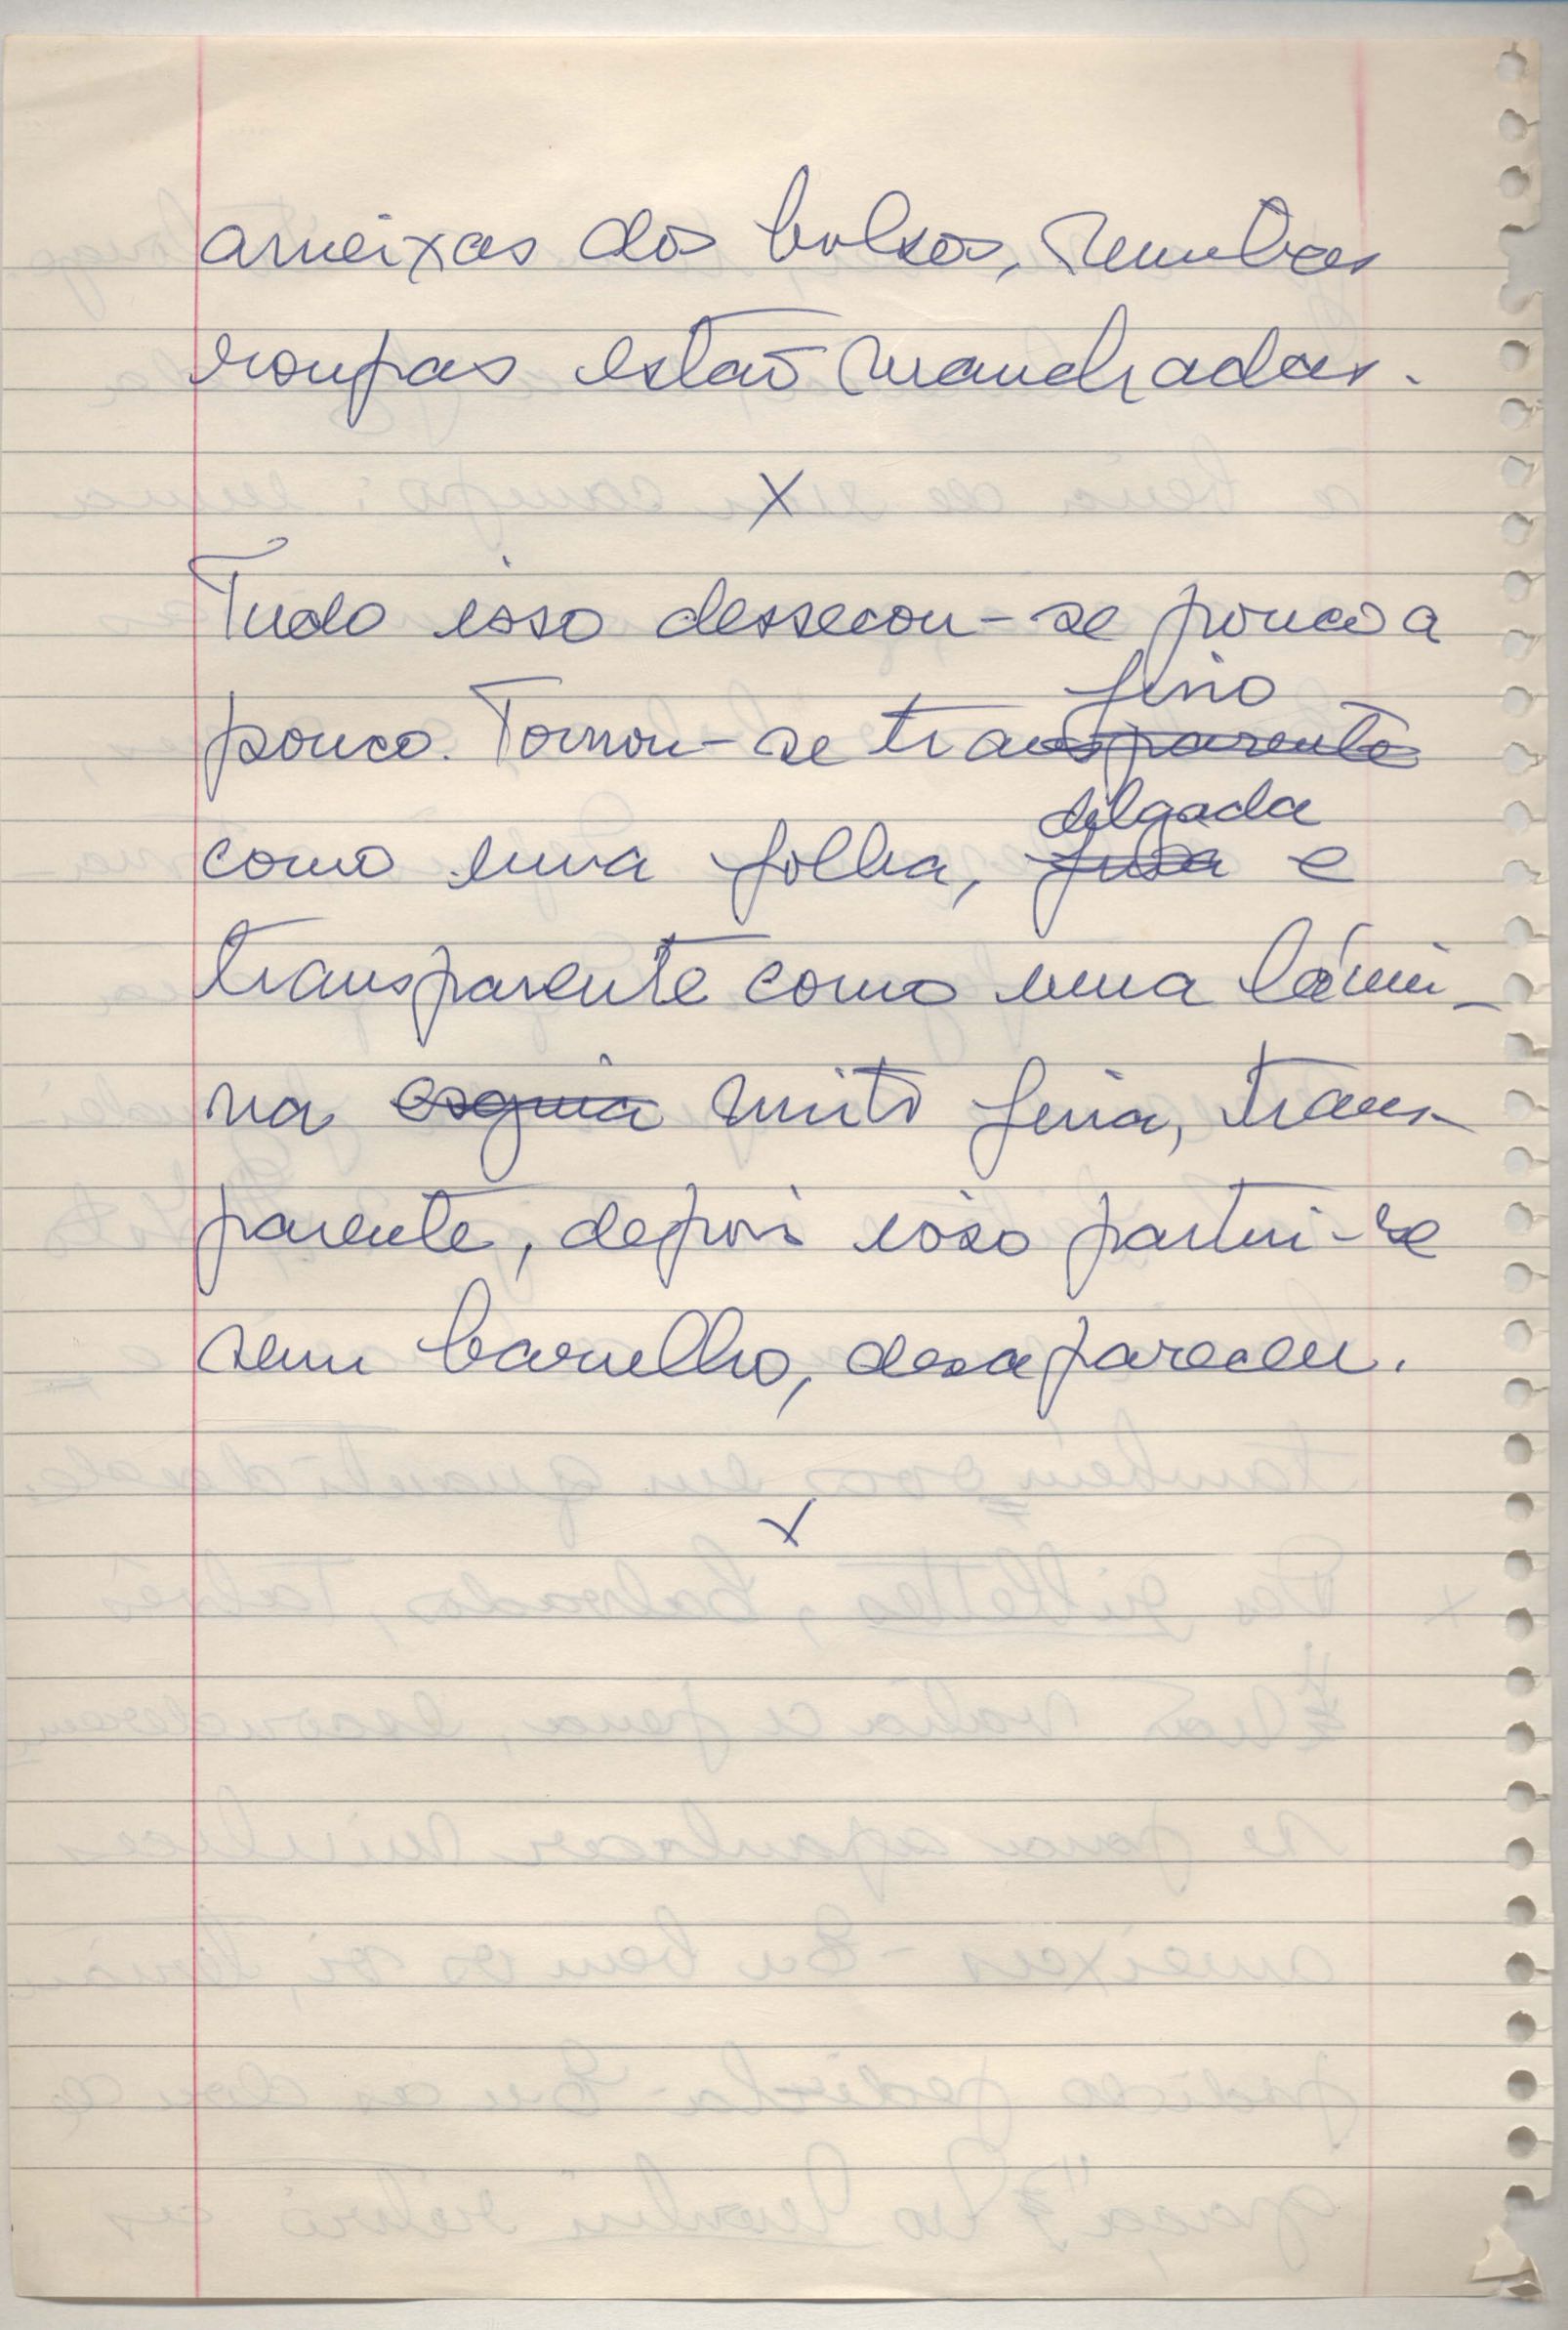 ameixas dos bolsos, minhas
roupas estão manchadas.
X
Tudo isso dessecou-se pouco a
fino
pouco. Tornou-se transparente
delgada
como uma folha, fina e
transparente como uma lâmi-
na esguia muito fina, trans-
parente, depois isso partiu-se
sem barulho, desapareceu.
X